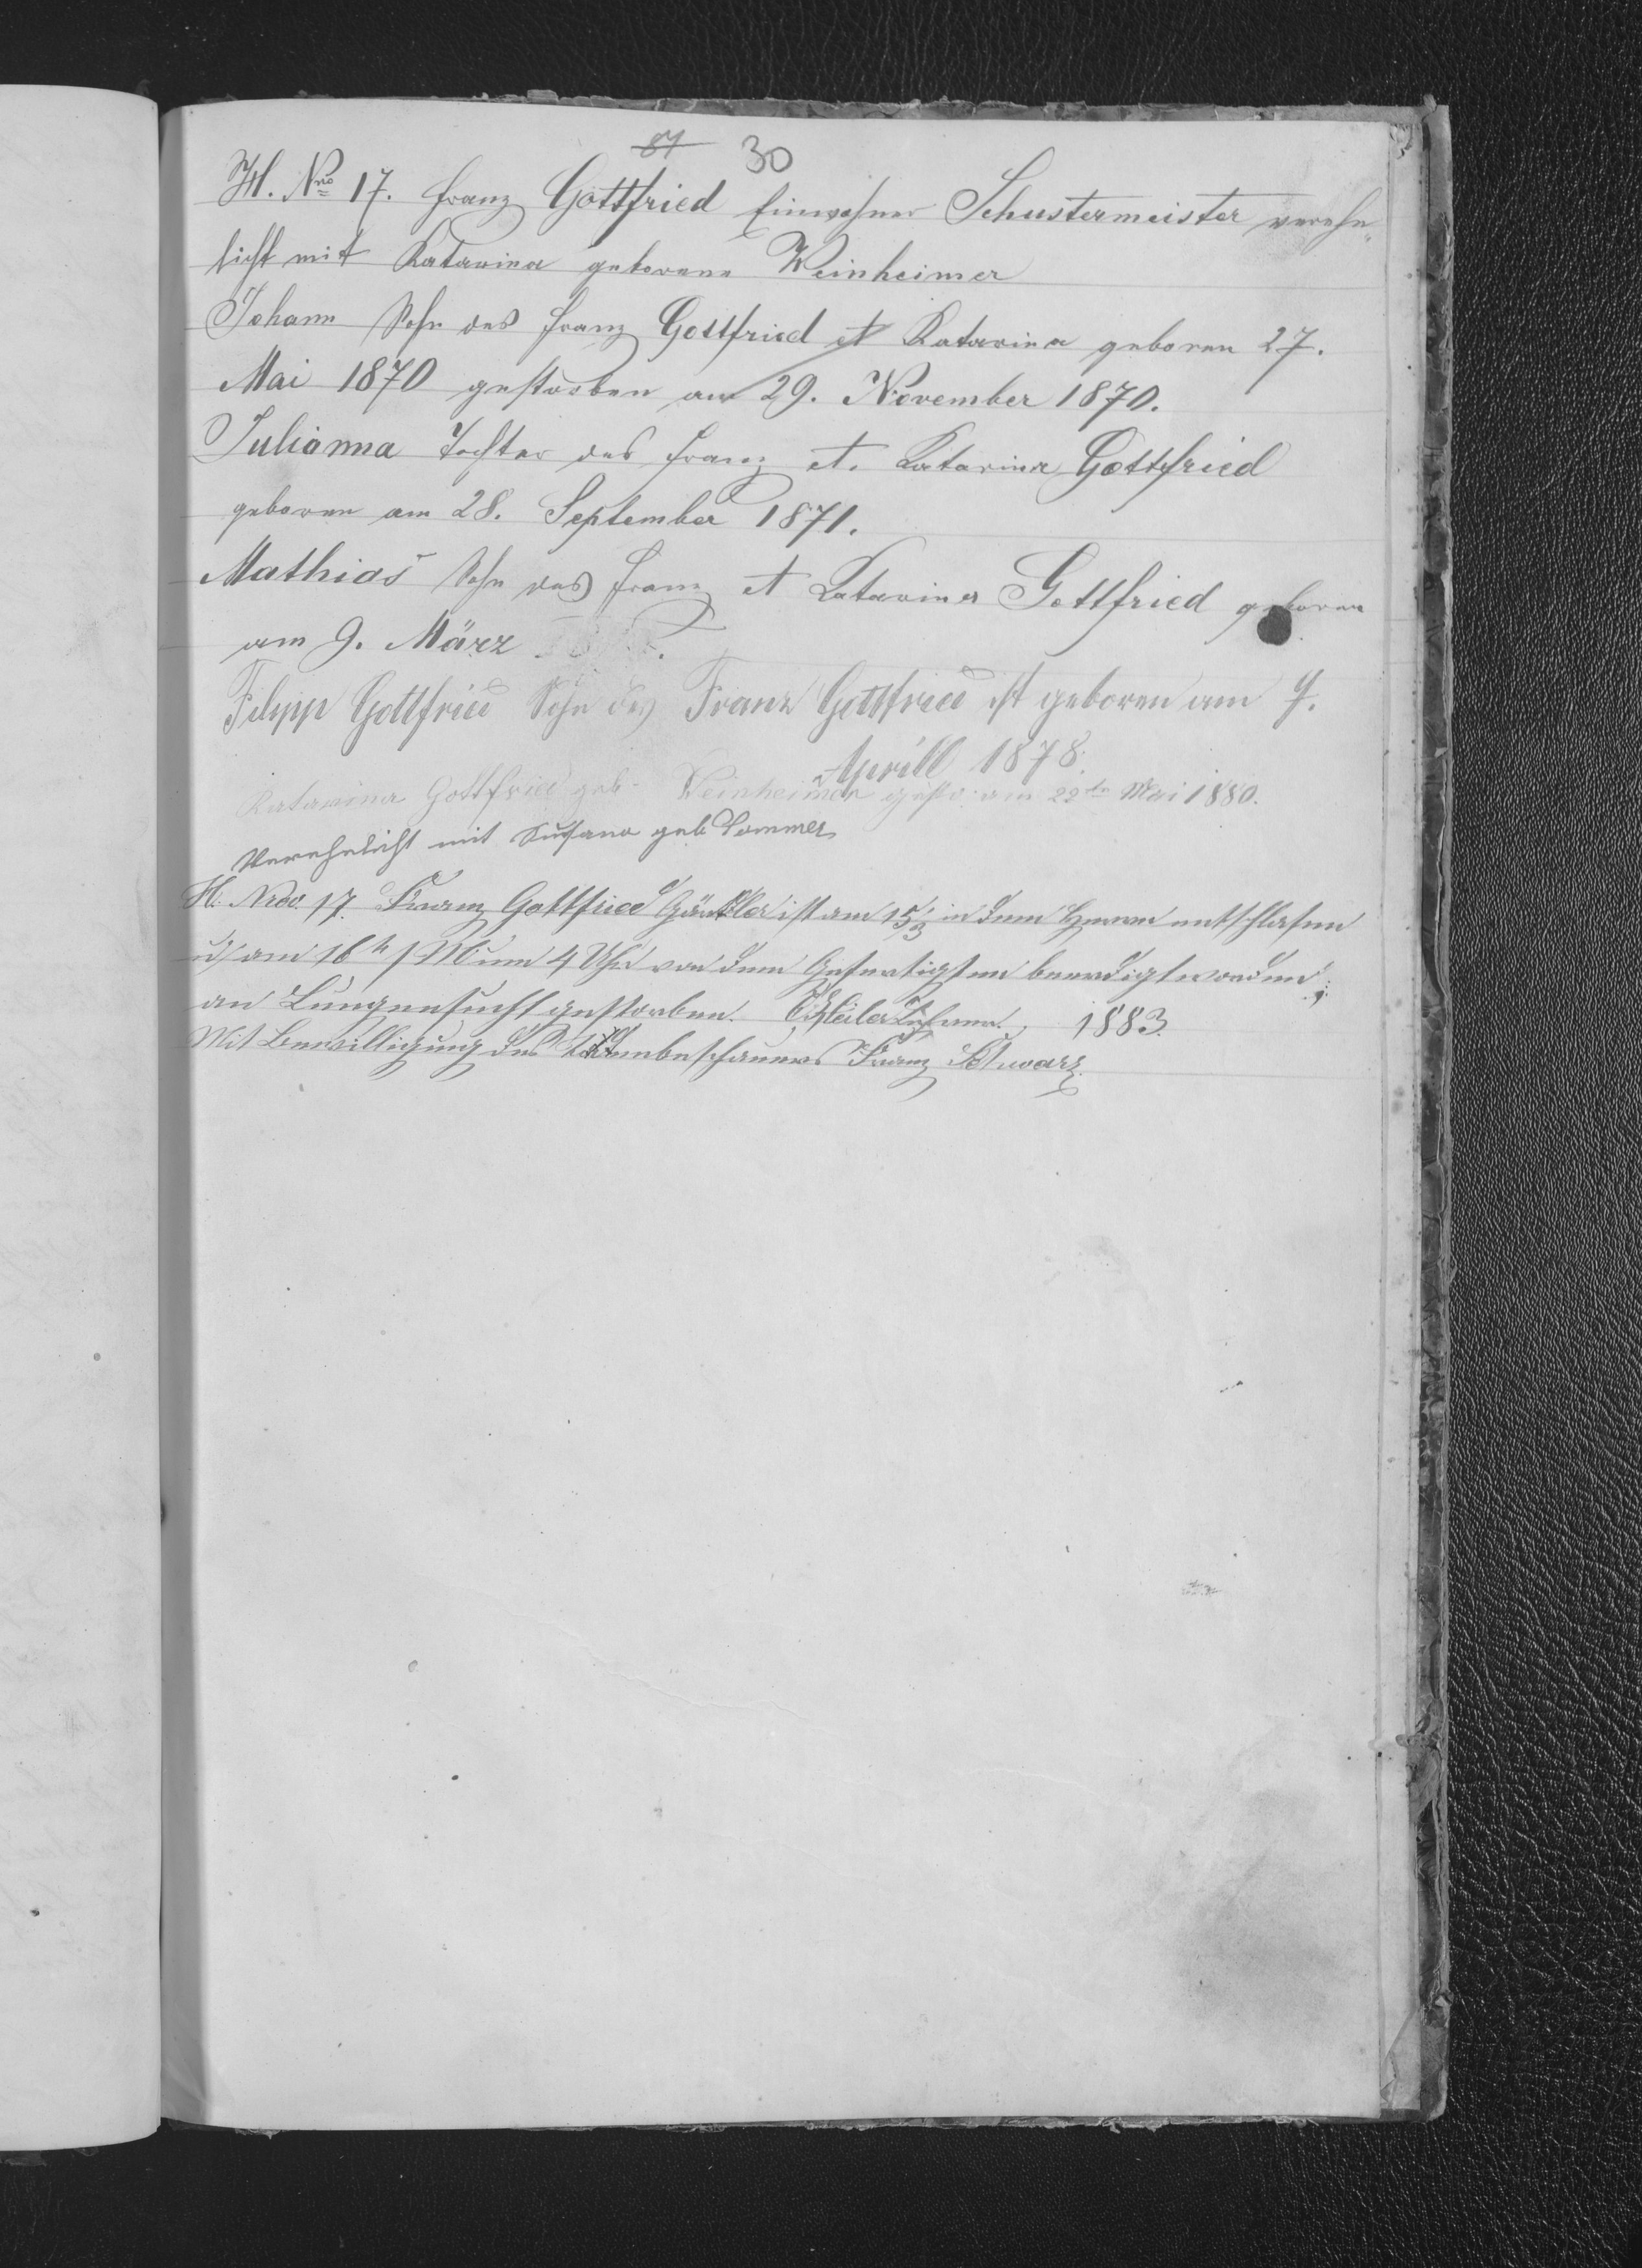 81 30
H. Nro 17. Franz Gottfried Einwohner Schustermeister vereh„
licht mit Katarina geborene Weinheimer
Johann Sohn des Franz Gottfried et Katarina geboren 27.
Mai 1870 gestorben am 29. November 1870.
Julianna Tochter des Franz et. Katarina Gottfried
geboren am 28. September 1871.
Mathias Sohn des Franz et Katarina Gottfried geboren
am 9. März
Filipp Gottfried Sohn des Franz Gottfried ist geboren am 7.
Aprill 1878.
Katarina Gottfried geb. Weinheimer gestor. am 22te Mai 1880.
Verehelicht mit Susana geb. Sommer
H. Nro. 17. Franz Gottfried ist am 15/3 in dem Herren entschlafen
u. am 16ten um 4 Uhr von dem Gefertigten beerdigt worden,
an Lungensucht gestorben. Lehrer. 1883.
Mit Bewilligung des Todtenbeschauers Franz Schwarz.